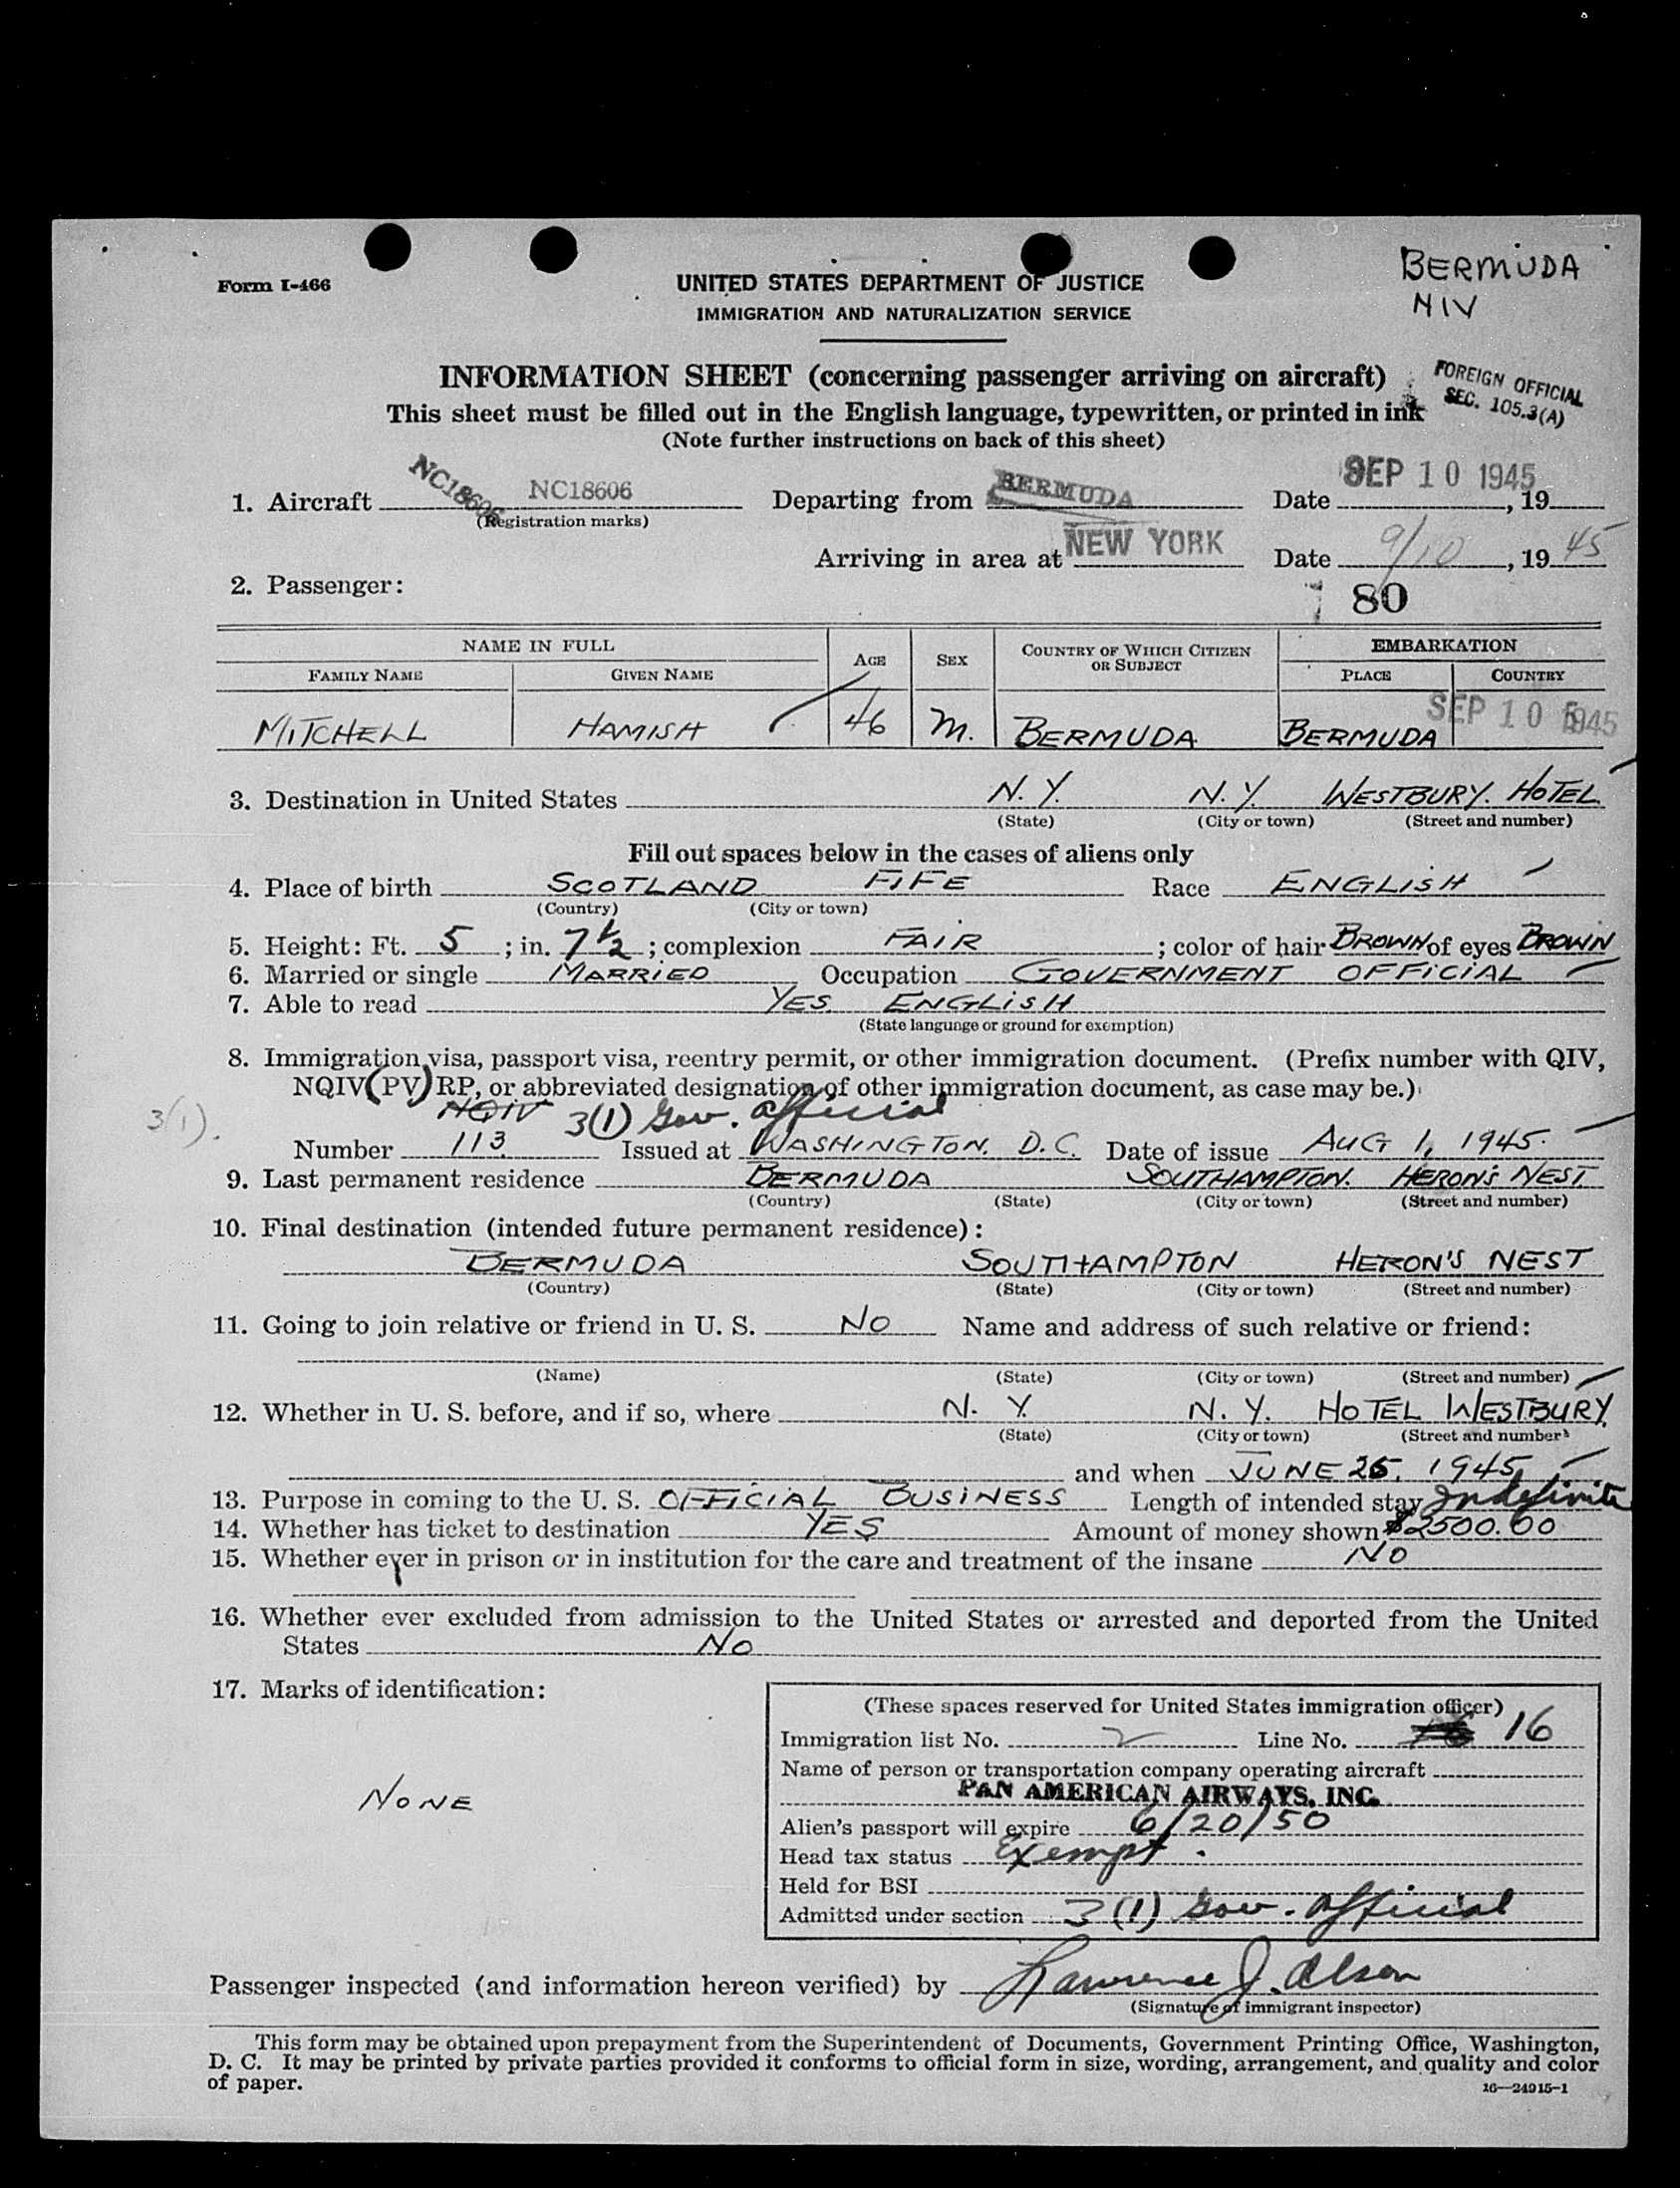 BERMUDA
NIV
Form I-466
UNITED STATES DEPARTMENT OF JUSTICE
IMMIGRATION AND NATURALIZATION SERVICE
INFORMATION SHEET (concerning passenger arriving on aircraft)
FOREIGN OFFICIAL
SEC. 105.3(A)
This sheet must be filled out in the English language, typewritten, or printed in ink
(Note further instructions on back of this sheet)
NC18606
1. Aircraft NC18606 Departing from BERMUDA Date SEP 10 1945, 19
(Registration marks)
Arriving in area at NEW YORK Date 9/10, 19 45
2. Passenger:
80
NAME IN FULL AGE SEX COUNTRY OF WHICH CITIZEN OR SUBJECT EMBARKATION
FAMILY NAME GIVEN NAME PLACE COUNTRY
SEP 10 1945
MITCHELL HAMISH 46 M. BERMUDA BERMUDA
3. Destination in United States N. Y. N. Y. WESTBURY. HOTEL.
(State) (City or town) (Street and number)
Fill out spaces below in the cases of aliens only
4. Place of birth SCOTLAND FIFE Race ENGLISH
(Country) (City or town)
5. Height: Ft. 5; in. 7 1/2; complexion FAIR; color of hair BROWN of eyes BROWN
6. Married or single MARRIED Occupation GOVERNMENT OFFICIAL
7. Able to read YES. ENGLISH
(State language or ground for exemption)
8. Immigration visa, passport visa, reentry permit, or other immigration document. (Prefix number with QIV,
NQIV (PV) RP, or abbreviated designation of other immigration document, as case may be.)
3(1). NQIV 3(1) Gov. official
Number 113 Issued at WASHINGTON. D.C. Date of issue AUG 1, 1945.
9. Last permanent residence BERMUDA SOUTHAMPTON. HERON'S NEST
(Country) (State) (City or town) (Street and number)
10. Final destination (intended future permanent residence):
BERMUDA SOUTHAMPTON HERON'S NEST
(Country) (State) (City or town) (Street and number)
11. Going to join relative or friend in U. S. NO Name and address of such relative or friend:
(Name) (State) (City or town) (Street and number)
12. Whether in U. S. before, and if so, where N. Y. N. Y. HOTEL WESTBURY.
(State) (City or town) (Street and number)
and when JUNE 25, 1945
13. Purpose in coming to the U. S. OFFICIAL BUSINESS Length of intended stay Indefinite
14. Whether has ticket to destination YES Amount of money shown $2500.00
15. Whether ever in prison or in institution for the care and treatment of the insane NO
16. Whether ever excluded from admission to the United States or arrested and deported from the United
States NO
17. Marks of identification:
NONE
(These spaces reserved for United States immigration officer)
Immigration list No. 2 Line No. 16
Name of person or transportation company operating aircraft
PAN AMERICAN AIRWAYS, INC.
Alien's passport will expire 6/20/50
Head tax status Exempt.
Held for BSI
Admitted under section 3(1) Gov. official
Passenger inspected (and information hereon verified) by Lawrence J. Olson
(Signature of immigrant inspector)
This form may be obtained upon prepayment from the Superintendent of Documents, Government Printing Office, Washington,
D. C. It may be printed by private parties provided it conforms to official form in size, wording, arrangement, and quality and color
of paper.
16—24915-1